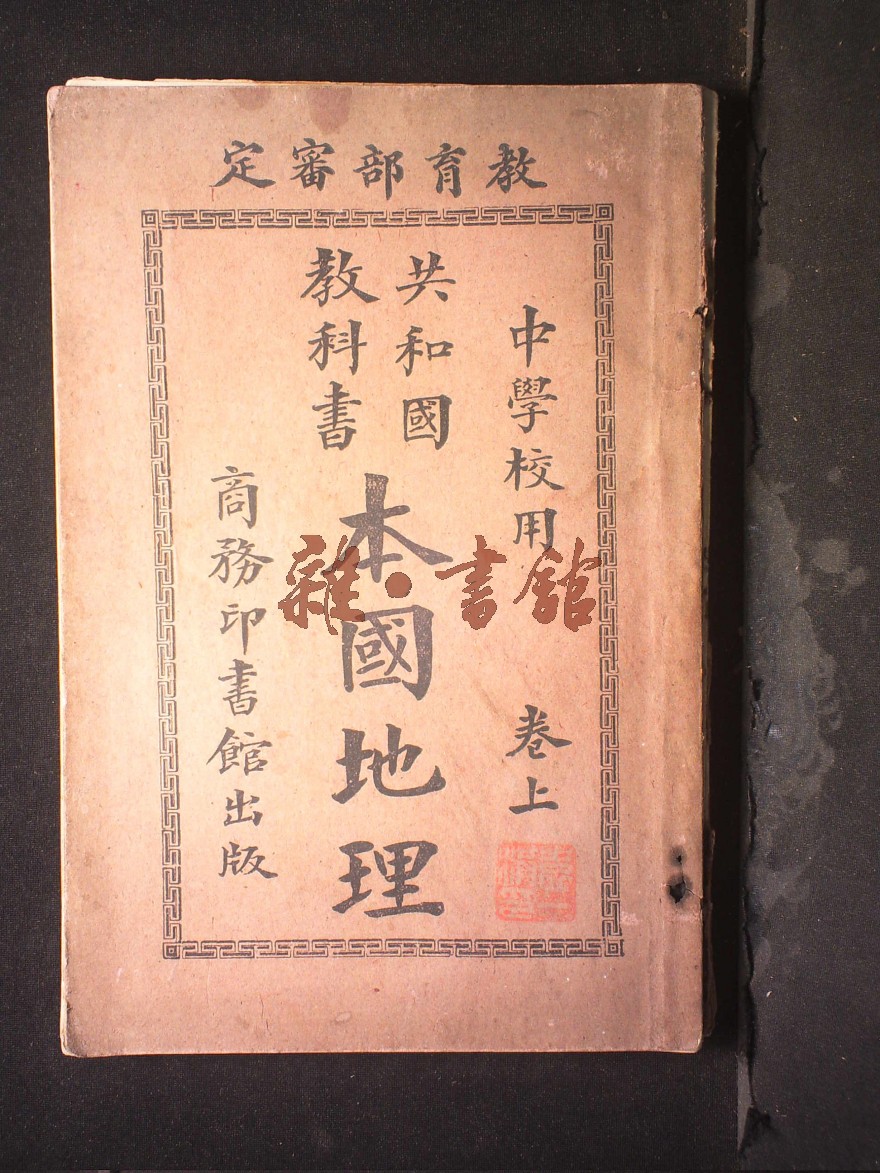 教育部審定
中學校用
卷上
共和國
教科書
本國地理
商務印書館出版
雜·書館